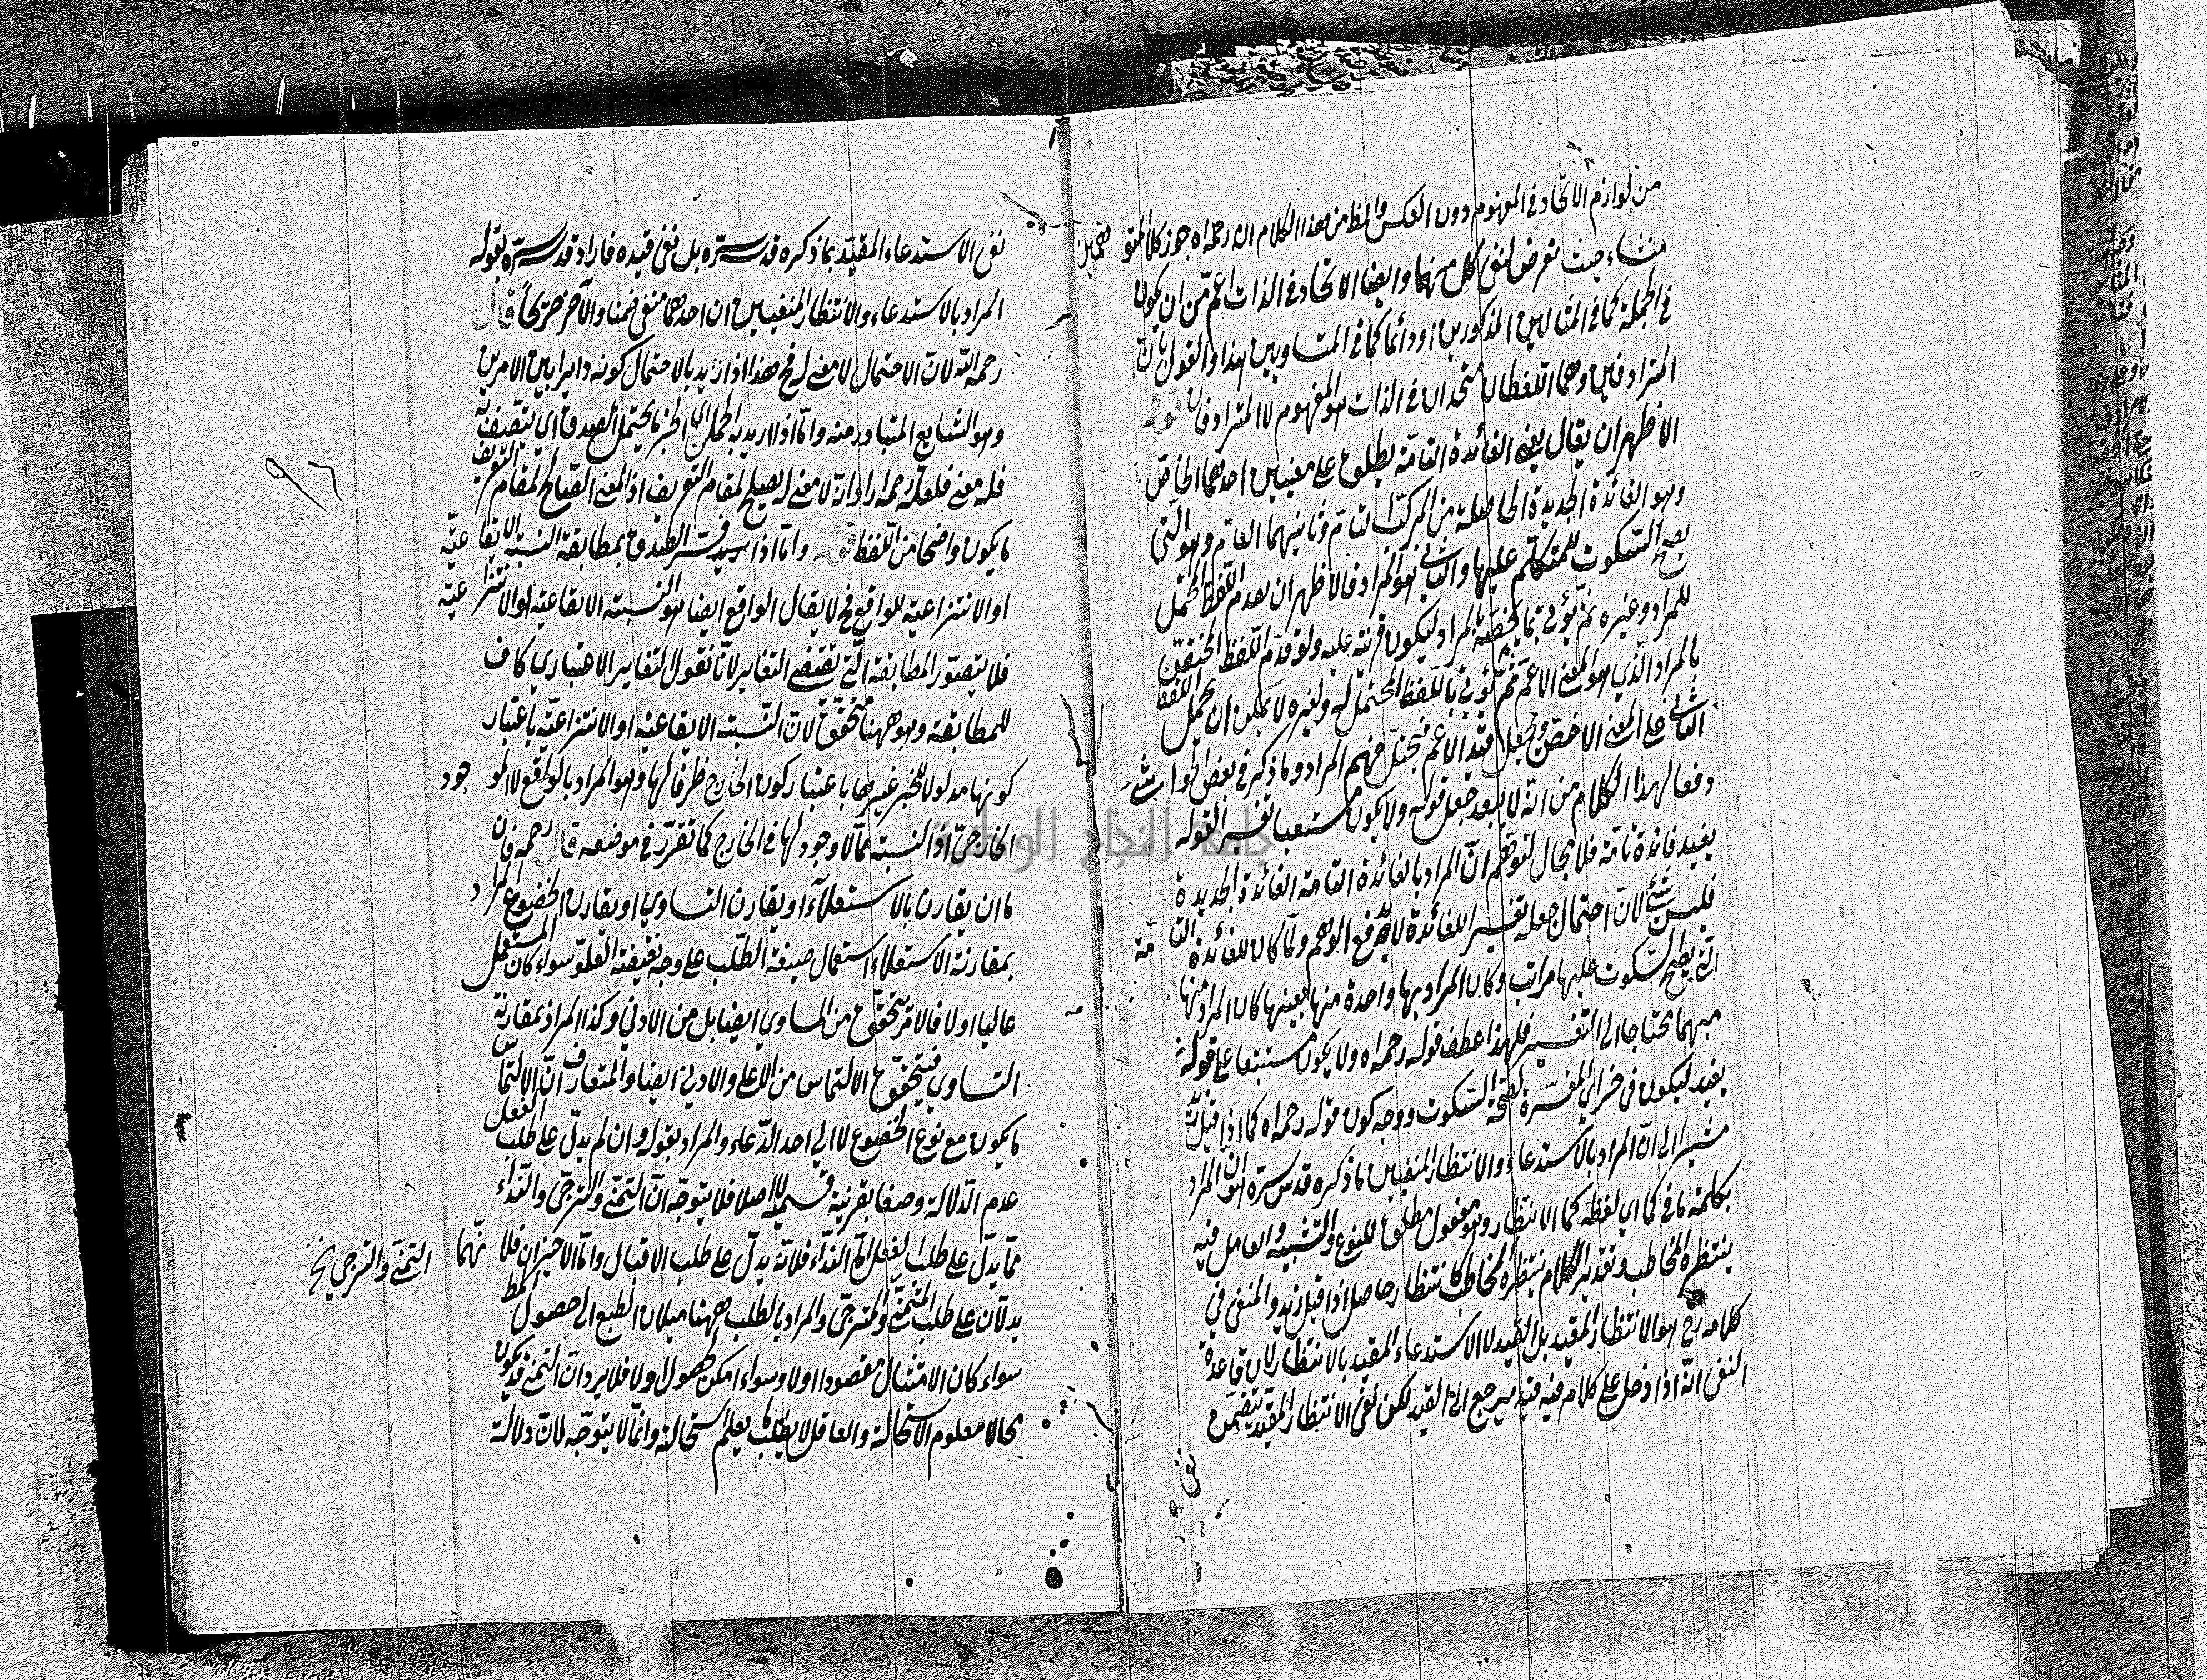 من لوازم الاتحاد في المفهوم دون العكس والحظ من هذا الكلام انه رحمه اه جوز كلا التوهمين
منشاء حيث تعرض لنفي كل منهما وايضا الاتحاد في الذات اعم من ان يكون
في الجملة كما في المثالين المذكورين او دائما كما في المتساويين هذا والقول بان
المترادفين وهما اللفظان متحدان في الذات هو المفهوم لا المترادفان قوله
الاظهر ان يقال يعني الفائدة التامة يطلق على معنيين احدهما الخاص
وهو الفائدة الجديدة الحاصلة من المركب التام وثانيهما العام وهو التي
يصح السكوت للمتكلم عليها والثاني هو المراد فالاظهر ان يقدم اللفظ المحتمل
للمراد وغيره ثم يؤتى بما يخصه بالمراد ليكون قرينة عليه ولو قدم اللفظ المختص
بالمراد الذي هو المعنى الاعم ثم يؤتى باللفظ المحتمل له ولغيره لا يمكن ان يحمل اللفظ
الثاني على المعنى الاخص ويجعل قيد الاعم فيختل فهم المراد وما ذكر في بعض الحواشي
دفعا لهذا الكلام من انه لا يبعد جعل قوله ولا يكون مستتبعا تفسير القوله
يفيد فائدة تامة فلا مجال لتوهم ان المراد بالفائدة التامة الفائدة الجديدة
فليس بشئ لان احتمال جعله تفسير اللفائدة لا يرفع الوهم ولما كان للفائدة التامة
التي يصح السكوت عليها مراتب وكان المراد بها واحدة منها بعينها كان المراد منها
مبهما محتاجا الى التفسير فلهذا عطف قوله رحمه اه ولا يكون مستتبعا على قوله
يفيد ليكون في حيز اي المفسرة لصحة السكوت ووجه كون قوله رحمه اه كما اذا قيل
مشيرا الى ان المراد بالاستدعاء والانتظار المنفيين ما ذكره قدس سره هو ان المراد
بكلمة ما في كما اي لفظة كما الانتظار وهو مفعول مطلق للنوع والتشبيه والعامل فيه
ينتظره المخاطب وتقدير الكلام ينتظره المخاطب كانتظار حاصل اذا قيل زيد والمنفي في
كلامه رح هو الانتظار المقيد بل القيد لا الاستدعاء المقيد بالانتظار لان قاعدة
النفي انه اذا دخل على كلام فيه قيد يرجع الى القيد لكن نفى الانتظار المقيد يتضمن
نفي
نفى الاستدعاء المقيد بما ذكره قدس سره بل نفى قيده فاراد قدس سره بقوله
المراد بالاستدعاء والانتظار المنفيين ان احدهما منفي ضمنا والآخر صريحا قال
رحمه الله لان الاحتمال لا معنى له فح هذا اذا اريد بالاحتمال كونه دايرا بين الامرين
وهو الشايع المتبادر منه واما اذا اريد به الحمل اي الخبر ما يحتمل الصدق اي يتصف به
فله معنى فلعله رحمه اراد انه لا معنى له يصلح لمقام التعريف اذ المعنى الصالح لمقام التعريف
ما يكون واضحا من اللفظ قوله واما اذا فسر الصدق بمطابقة النسبة الايقاعية
او الانتزاعية للواقع فح لا يقال الواقع ايضا هو النسبة الايقاعية او الانتزاعية
فلا يتصور المطابقة التي تقتضي التغاير لانا نقول التغاير الاعتباري كاف
للمطابقة وهو ههنا متحقق لان النسبة الايقاعية او الانتزاعية باعتبار
كونها مدلولا للخبر غيرها باعتبار كون الخارج ظرفا لها وهو المراد بالواقع لا الموجود
الخارجي اذ النسبة مما لا وجود لها في الخارج كما تقرر في موضعه قال رحمه فان
ما ان يقارن بالاستعلاء او يقارن التساوي او يقارن الخضوع المراد
بمقارنة الاستعلاء استعمال صيغة الطلب على وجه تقتضيه العلو سواء كان المستعمل
عاليا او لا فالامر يتحقق من المساوي ايضا بل من الادنى وكذا المراد بمقارنة
التساوي فيتحقق الالتماس من الاعلى والادنى ايضا والمتعارف ان الالتماس
ما يكون مع نوع الخضوع لا الى احد الدعاء والمراد بقوله وان لم يدل على طلب الفعل
عدم الدلالة وضعا بقرينة قسيمه لا اصلا فلا يتوجه ان التمني والترجي والنداء
مما يدل على طلب الفعل اما النداء فلانه يدل على طلب الاقبال واما الاخيران فلانهما
التمني والترجي نخ
يدلان على طلب المتمنى والمترجى والمراد بالطلب ههنا ميلان الطبع الى حصول المط
سواء كان الامتثال مقصودا اولا وسواء امكن حصوله اولا فلا يرد ان التمنى قد يكون
محالا معلوم الاستحالة والعاقل لا يطلب ما يعلم استحالته وانما لا يتوجه لان دلالة